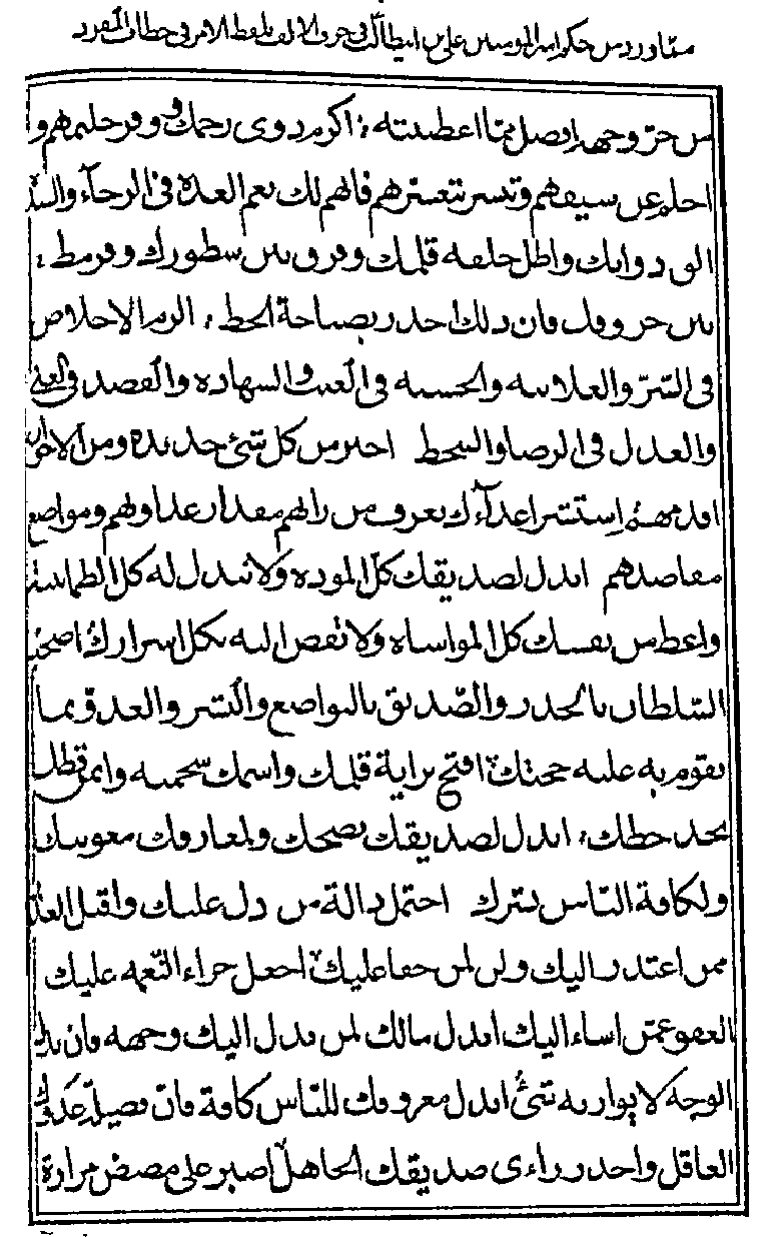 مما ورد من حكم أمير المؤمنين علي بن أبي طالب في حرف الألف بلفظ الأمر في خطاب المفرد
من حر وجهه إفضل مما اعطيته اكرم ذوي رحمك و وقر حليمهم و
احلم عن سفيههم وتيسر لمعسرهم فإنهم لك نعم العدة في الرخاء والشدة
الق دواتك واطل جلفة قلمك وفرق بين سطورك وقرمط
بين حروفك فان ذلك اجدر بصباحة الخط الزم الاخلاص
في السّرّ والعلانية والخشية في الغيب والشهادة والقصد في
والعدل في الرضا والسخط اختر من كل شئ جديده ومن الاخوان
اقدمهم إستشر اعداءك تعرف من رايهم مقدار عداوتهم ومواضع
مقاصدهم ابذل لصديقك كلّ المودة ولا تبذل له كل الطمانينة
واعطه من نفسك كل المواساة ولا تفض اليه بكل اسرارك اصحب
السّلطان بالحذر والصّديق بالتواضع والبشر والعدو بما
تقوم به عليه حجتك افتح براية قلمك واسمك شحمته وايمن قطك
يجد خطك ابذل لصديقك نصحك ولمعارفك معونتك
ولكافة الناس بشرك احتمل دالة من دل عليك واقبل العذر
ممن اعتذر اليك ولن لمن جفا عليك اجعل جزاء النّعمة عليك
العفو عمّن اساء اليك ابذل مالك لمن بذل اليك وجهه فان بذل
الوجه لا يوازيه شئ ابذل معروفك للنّاس كافة فان
العاقل واحذر راى صديقك الجاهل اصبر على مضض مرارة